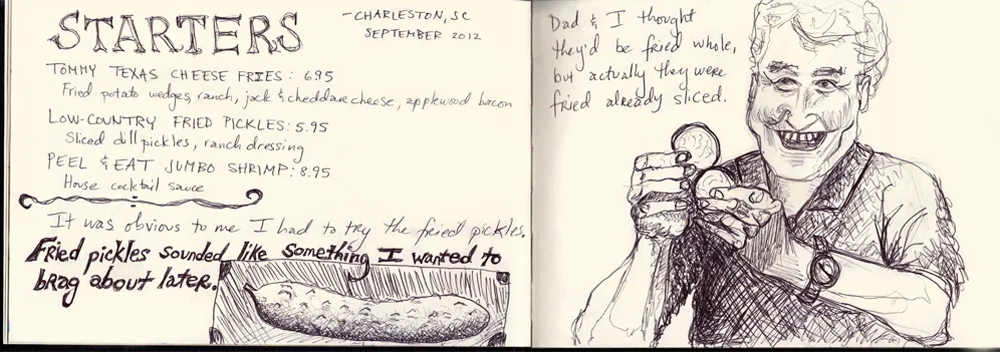 STARTERS
- CHARLESTON, SC
SEPTEMBER 2012
TOMMY TEXAS CHEESE FRIES: 695
Fried potato wedges, ranch, jack & cheddar cheese, applewood bacon
LOW-COUNTRY FRIED PICKLES: 5.95
Sliced dill pickles, ranch dressing
PEEL & EAT JUMBO SHRIMP: 8.95
House cocktail sauce
It was obvious to me I had to try the fried pickles.
Fried pickles sounded like something I wanted to
brag about later.
Dad & I thought
they'd be fried whole,
but actually they were
fried already sliced.